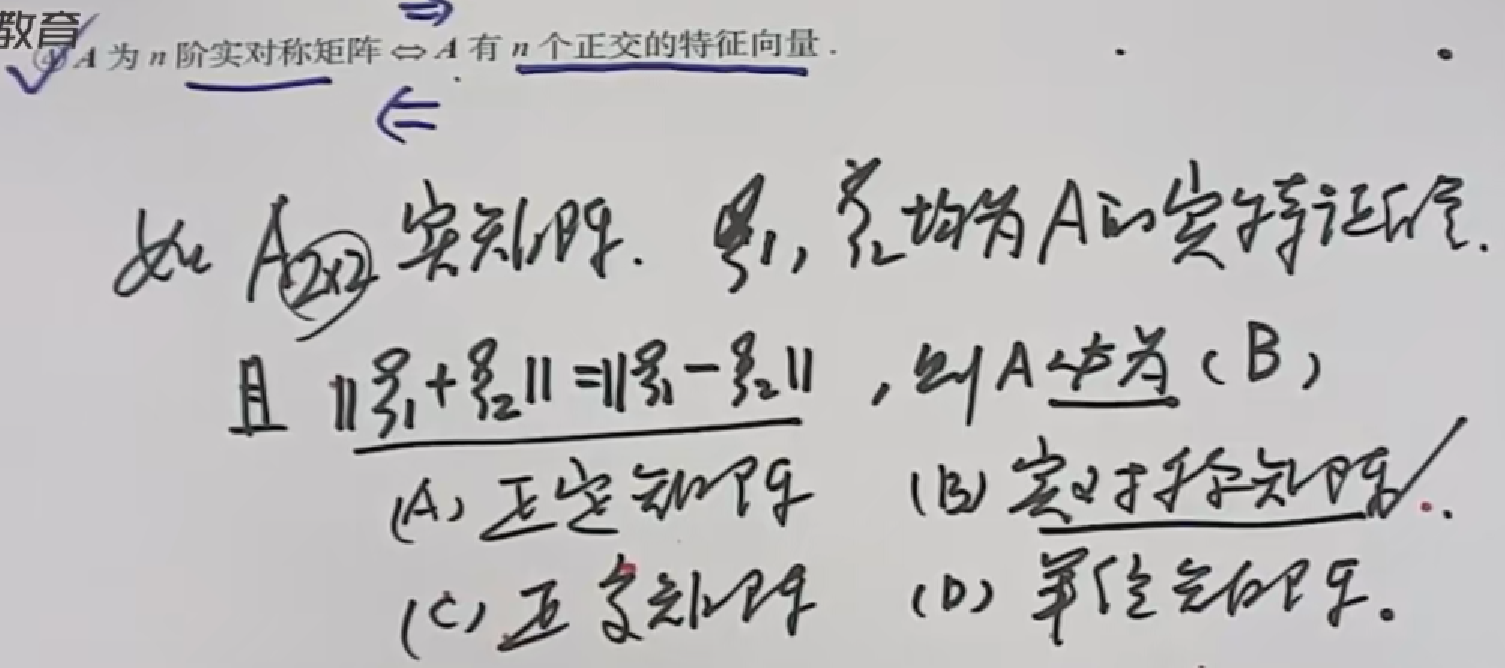 教育
④ A 为 n 阶实对称矩阵 ⇔ A 有 n 个正交的特征向量.
⇒
⇐
如 A2×2 实矩阵. ξ1, ξ2 均为 A 的实特征向量.
且 ||ξ1+ξ2|| = ||ξ1-ξ2||, 则 A 必为 ( B )
(A) 正定矩阵 (B) 实对称矩阵
(C) 正交矩阵 (D) 单位矩阵.